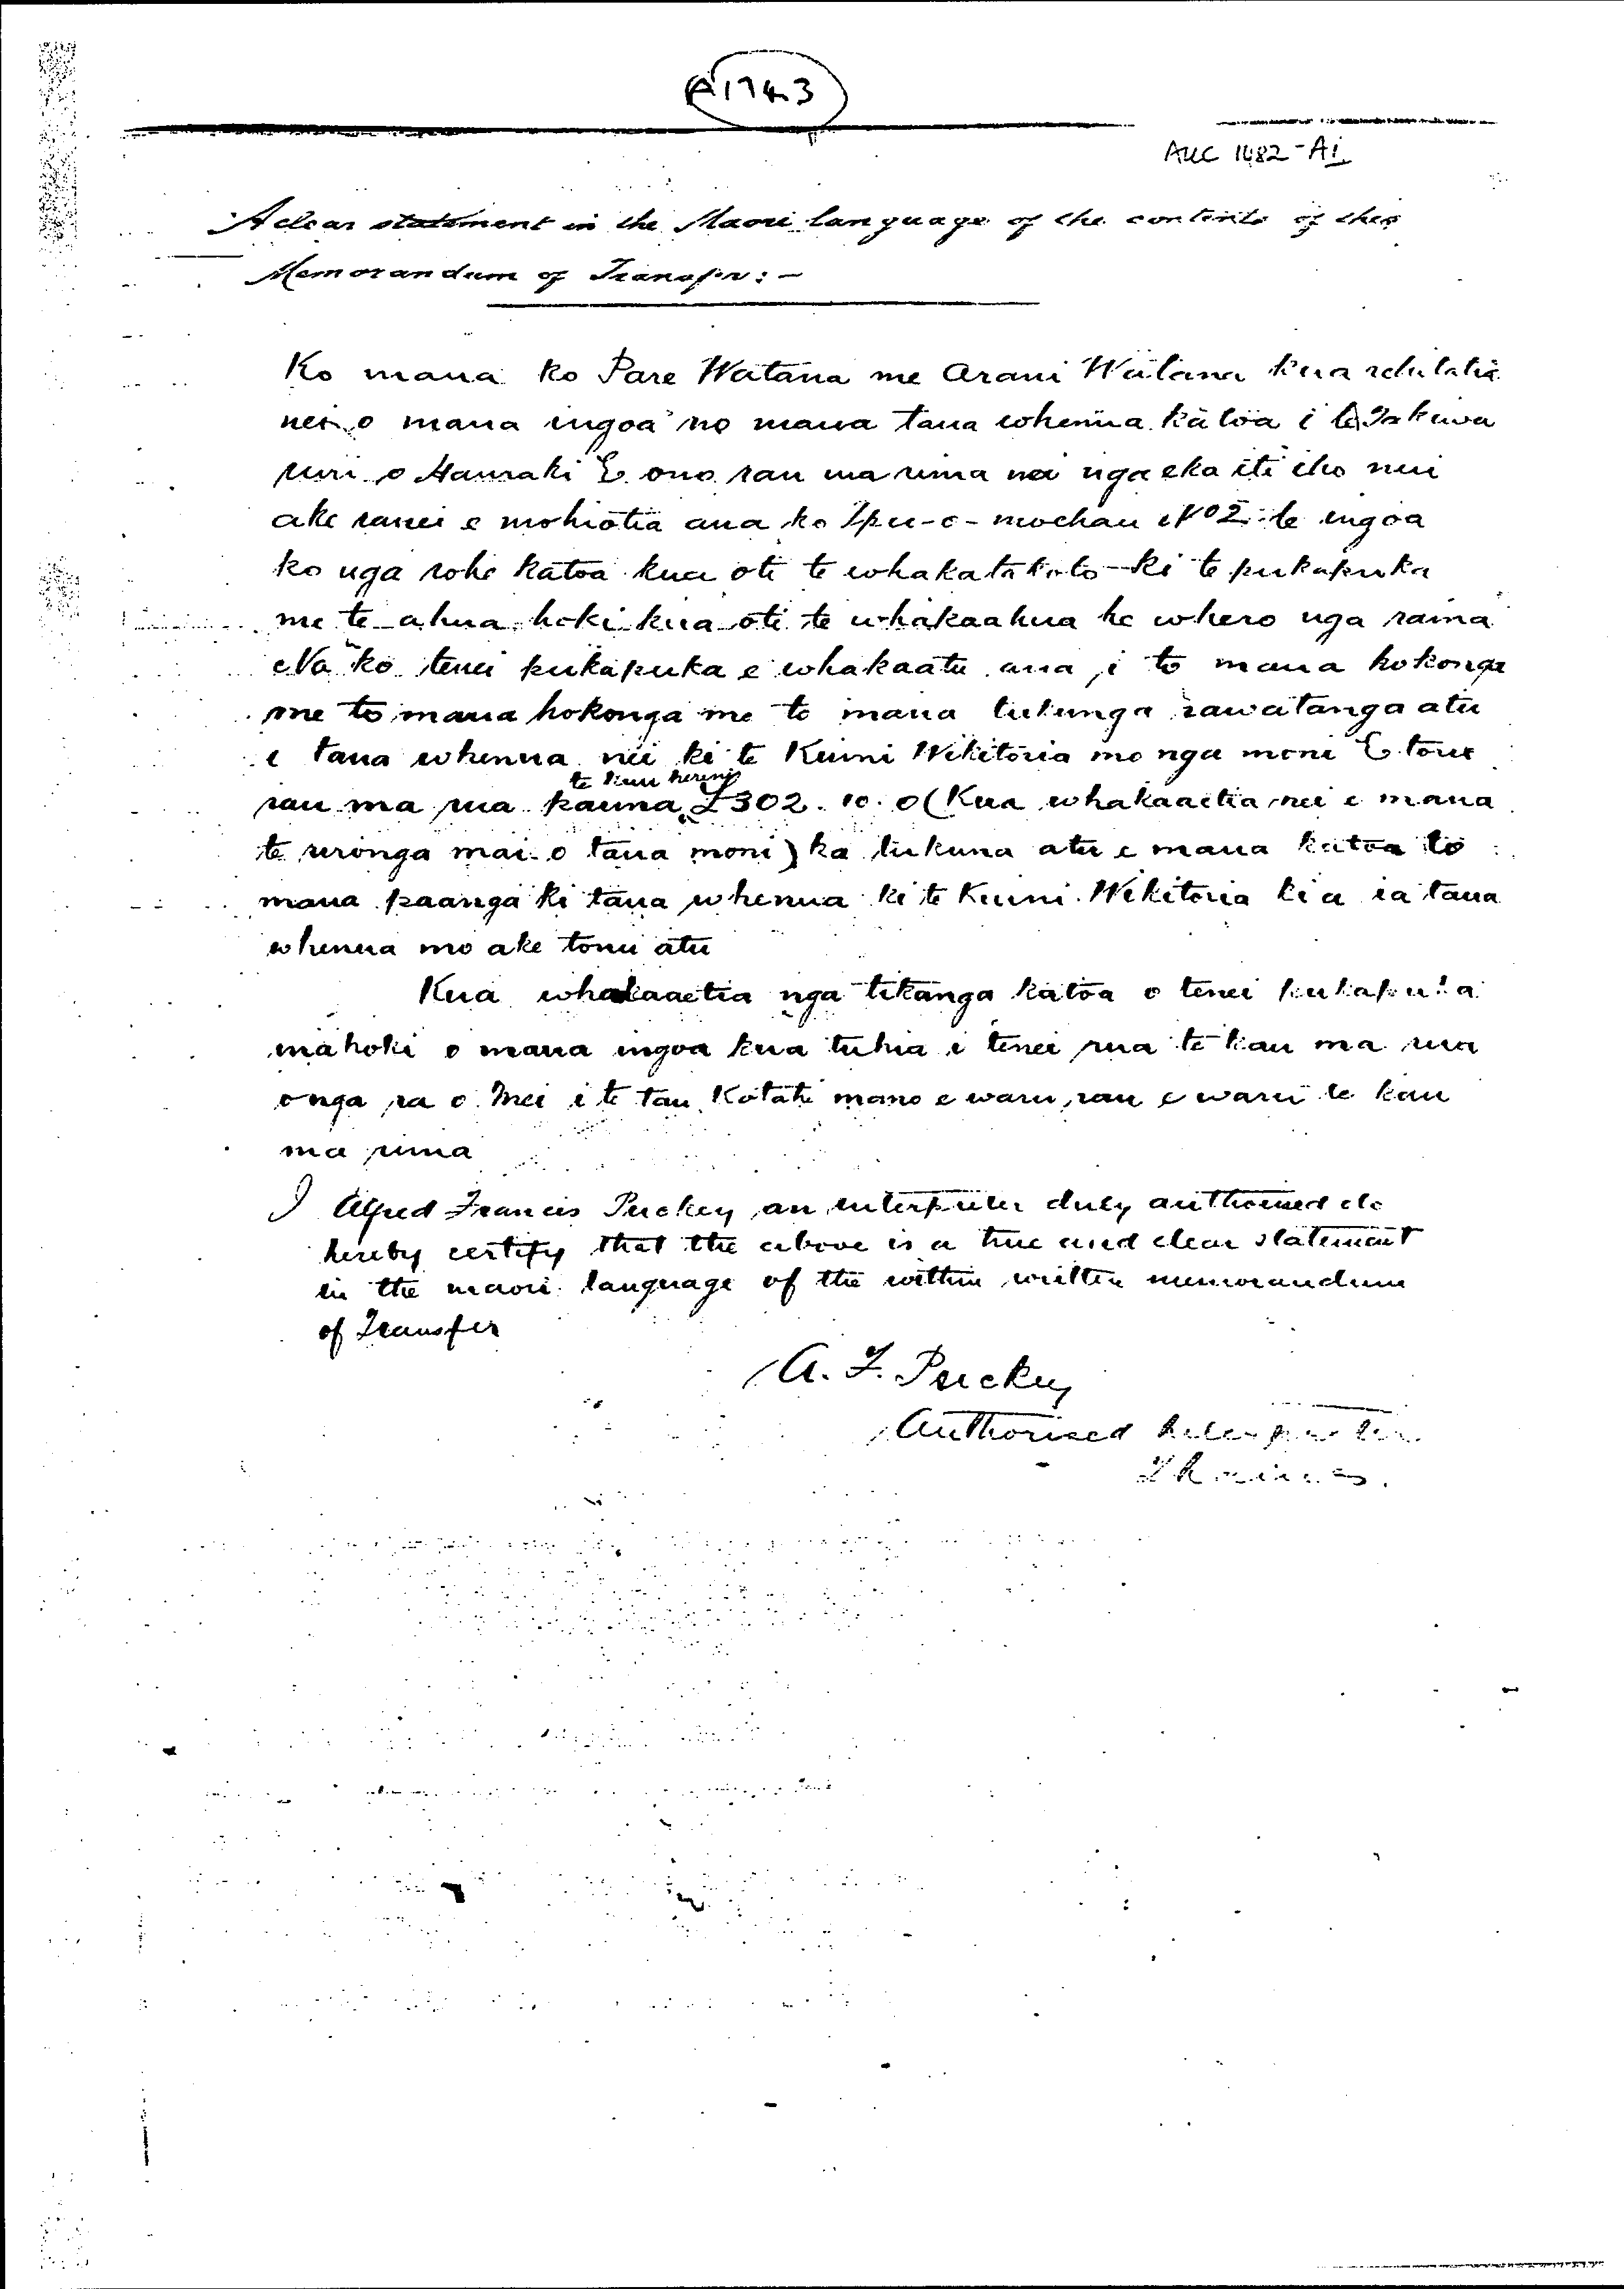 A1743
AUC 1482-A1
A clear statement in the Maori language of the contents of this
Memorandum of Transfer: -
Ko maua ko Pare Watana me Arani Watana kua
nei o maua ingoa no maua taua whenua katoa i te Takiwa
ruri o Hauraki E ono rau ma rima nei nga eka iti iho nui
ake ranei e mohiotia ana ko Ipu-o-moehau No 2 te ingoa
ko nga rohe katoa kua oti te whakatakoto ki te pukapuka
me te ahua hoki kua oti te whakaahua he whero nga raina
Na ko tenei pukapuka e whakaatu ana i to maua hokonga
me to maua hokonga me to maua tukunga rawatanga atu
i taua whenua nei ki te Kuini Wikitoria mo nga moni E toru
te kau hereni
rau ma rua pauna £302.10.0 (Kua whakaaetia nei e maua
te rironga mai o taua moni) ka tukuna atu e maua katoa to
maua paanga ki taua whenua ki te Kuini Wikitoria ki a ia taua
whenua mo ake tonu atu
Kua whakaaetia nga tikanga katoa o tenei pukapuka
ina hoki o maua ingoa kua tuhia i tenei rua te kau ma rua
o nga ra o Mei i te tau Kotahi mano e waru rau e waru te kau
ma rima
I Alfred Francis Puckey an interpreter duly authorised do
hereby certify that the above is a true and clear statement
in the maori language of the within written memorandum
of Transfer
A. F. Puckey
Authorised Interpreter
Thames.